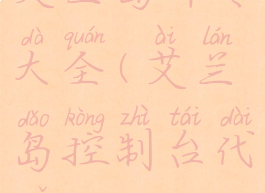 dà quán ài lán
大全(艾兰
dǎo kòng zhì tái dài
岛控制台代